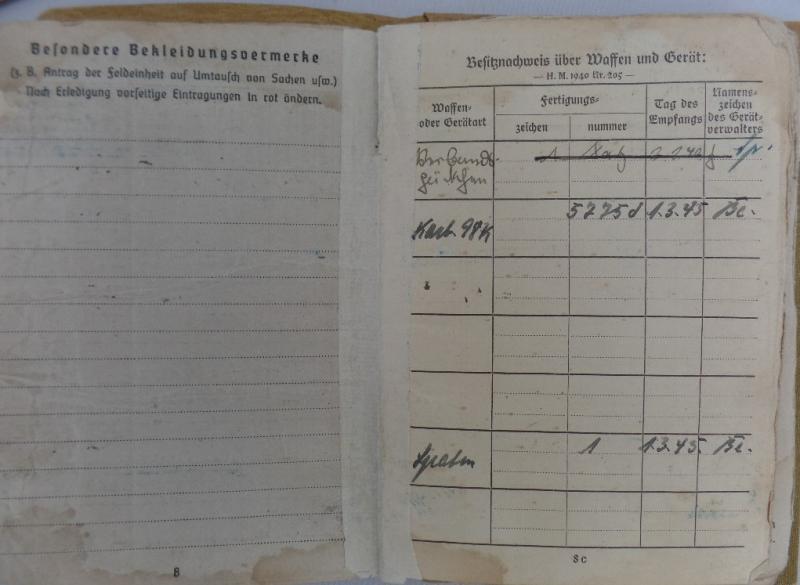 Besondere Bekleidungsvermerke
(z. B. Antrag der Feldeinheit auf Umtausch von Sachen usw.)
Nach Erledigung vorseitige Eintragungen in rot ändern.
8
Besitznachweis über Waffen und Gerät:
— H. M. 1940 Nr. 205 —
Waffen- oder Gerätart
Fertigungs-
zeichen
nummer
Tag des Empfangs
Namens- zeichen des Gerät- verwalters
Verbands-
päckchen
1
Karb. 98K 5775d 1.3.45 Be.
Spaten 1 1.3.45 Be.
8c